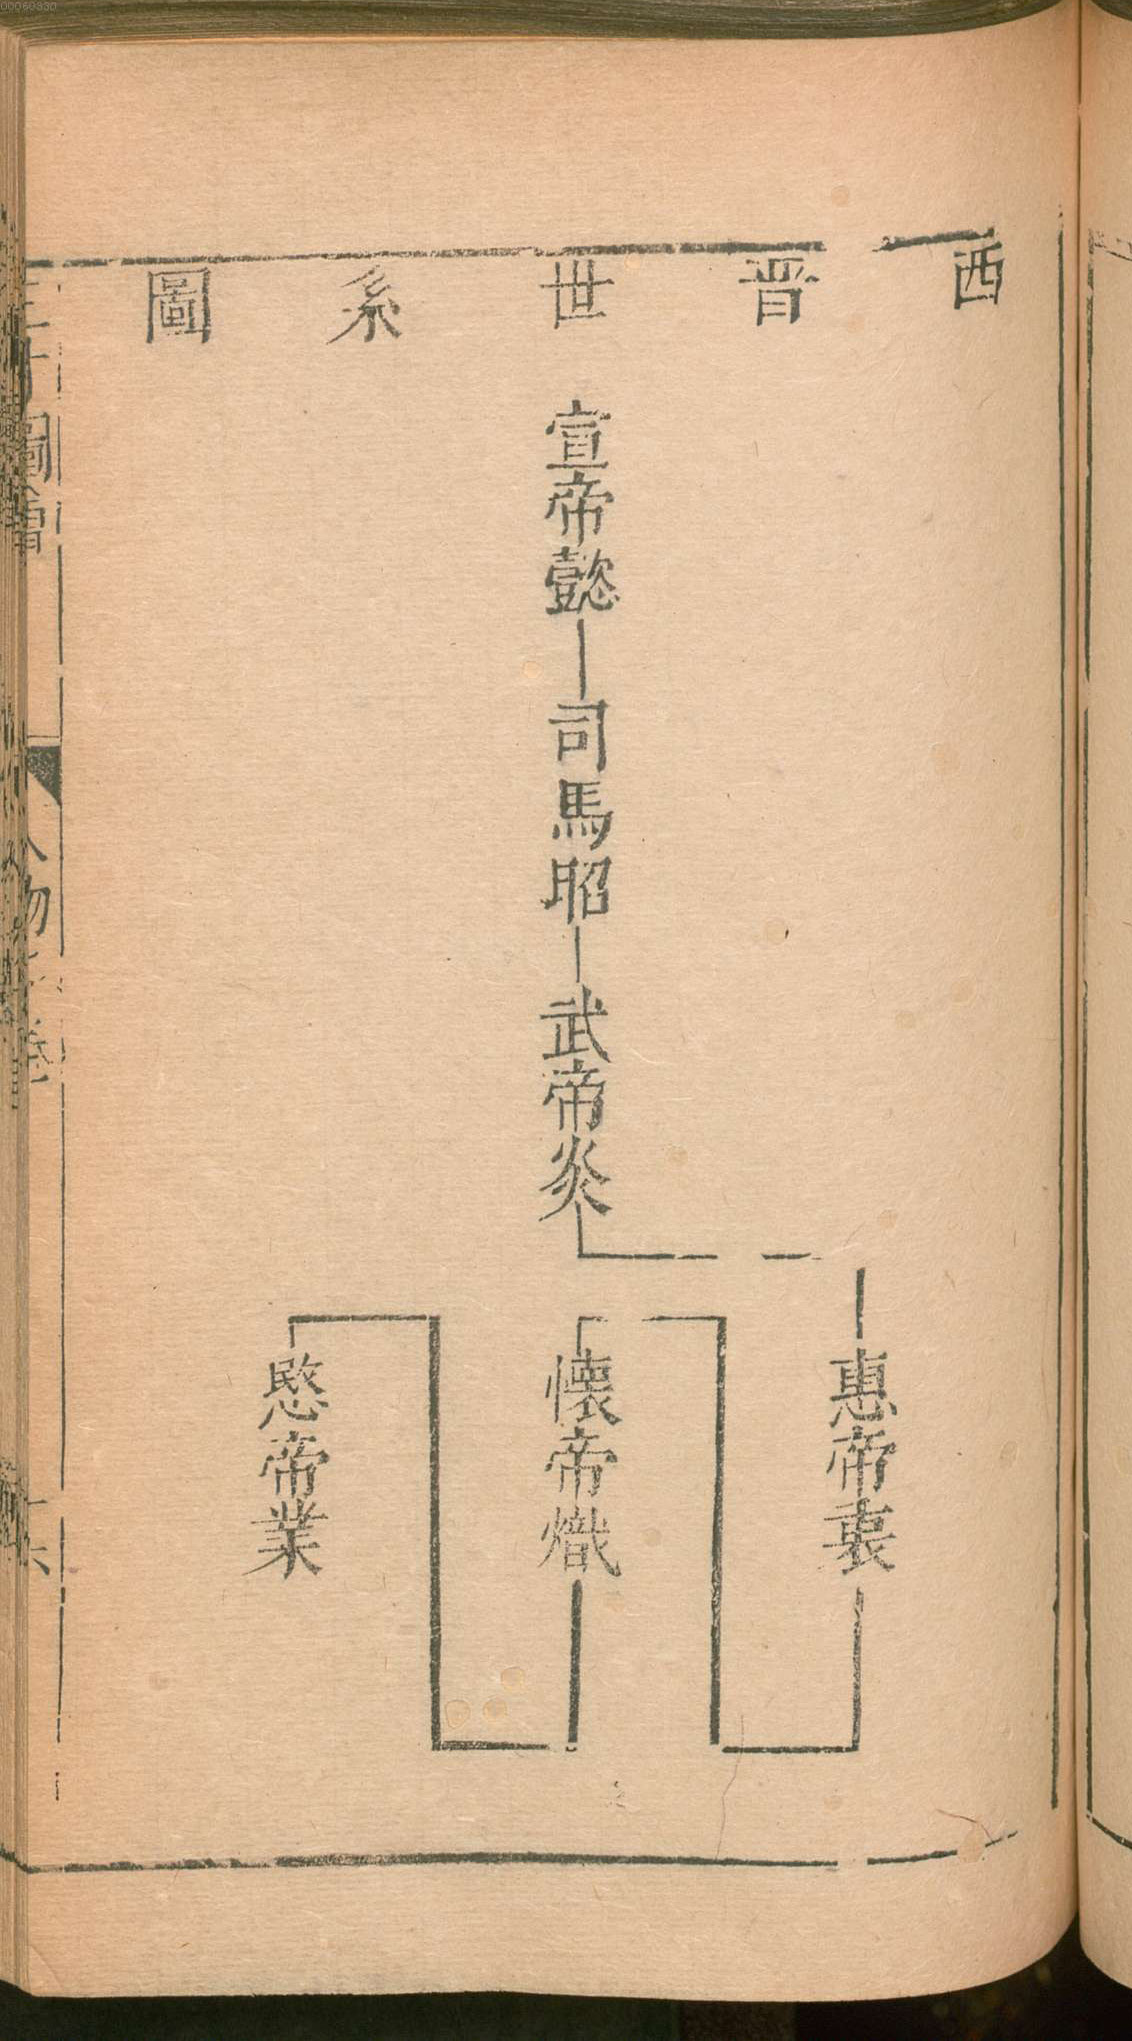 西晋世系圖
宣帝懿
司馬昭
武帝炎
惠帝衷
懷帝熾
愍帝業
圖會
物
00060830